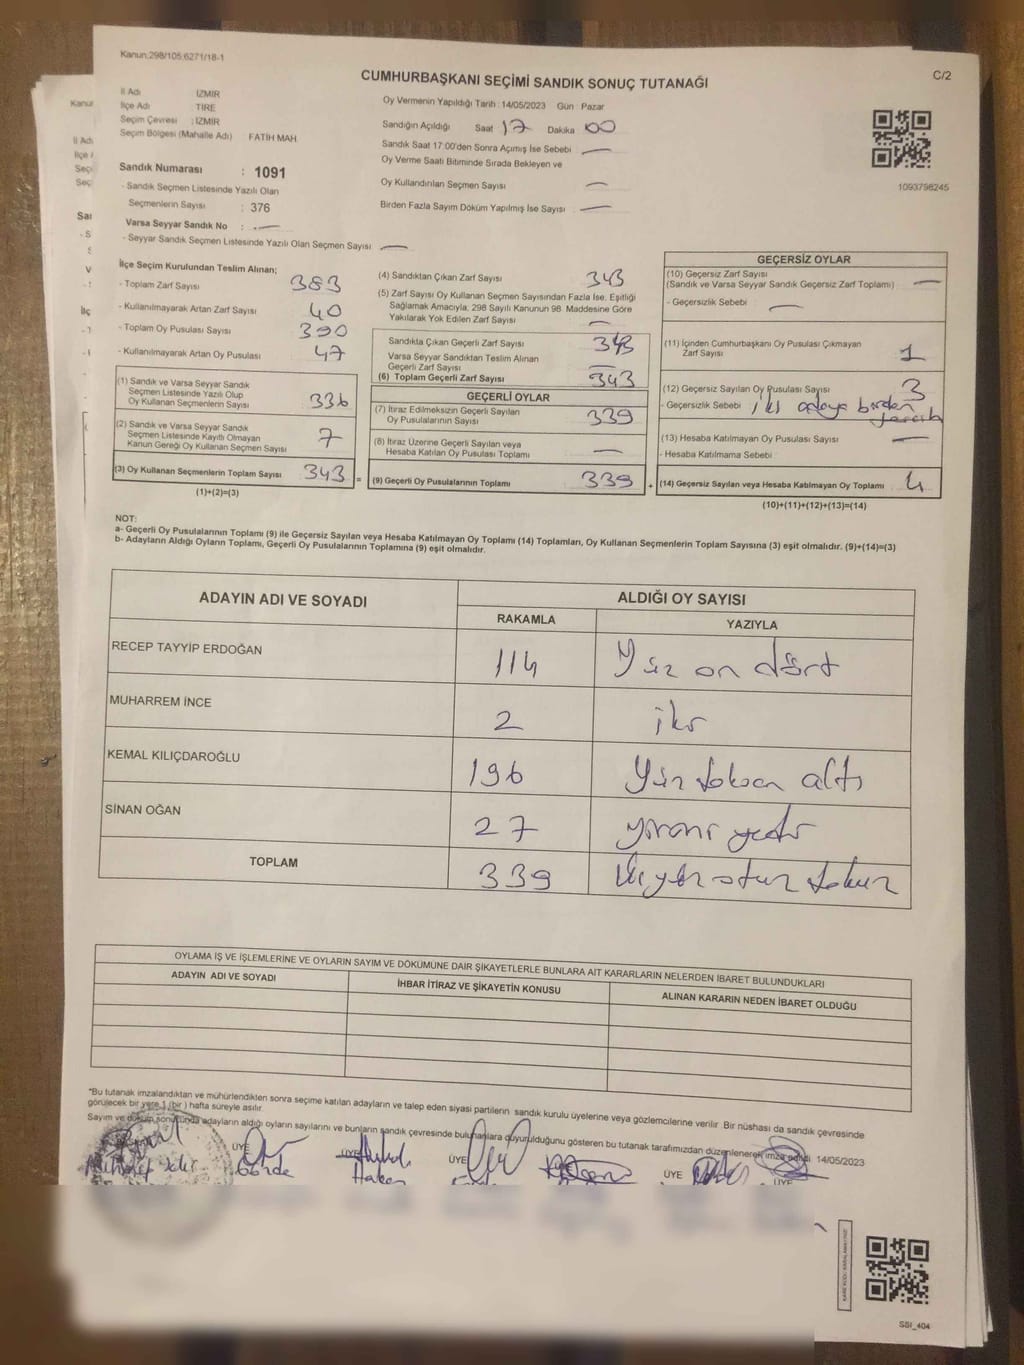 Kanun:298/105:6271/18-1
CUMHURBAŞKANI SEÇİMİ SANDIK SONUÇ TUTANAĞI
C/2
İl Adı İZMİR
İlçe Adı TİRE
Seçim Çevresi : İZMİR
Seçim Bölgesi (Mahalle Adı) FATİH MAH
Sandık Numarası : 1091
- Sandık Seçmen Listesinde Yazılı Olan
Seçmenlerin Sayısı : 376
Varsa Seyyar Sandık No : —
- Seyyar Sandık Seçmen Listesinde Yazılı Olan Seçmen Sayısı —
Oy Vermenin Yapıldığı Tarih : 14/05/2023 Gün : Pazar
Sandığın Açıldığı Saat 17 Dakika 00
Sandık Saat 17:00'den Sonra Açımış İse Sebebi —
Oy Verme Saati Bitiminde Sırada Bekleyen ve
Oy Kullandırılan Seçmen Sayısı —
Birden Fazla Sayım Döküm Yapılmış İse Sayısı —
1093798245
İlçe Seçim Kurulundan Teslim Alınan;
- Toplam Zarf Sayısı 383
- Kullanılmayarak Artan Zarf Sayısı 40
- Toplam Oy Pusulası Sayısı 390
- Kullanılmayarak Artan Oy Pusulası 47
(1) Sandık ve Varsa Seyyar Sandık
Seçmen Listesinde Yazılı Olup
Oy Kullanan Seçmenlerin Sayısı 336
(2) Sandık ve Varsa Seyyar Sandık
Seçmen Listesinde Kayıtlı Olmayan
Kanun Gereği Oy Kullanan Seçmen Sayısı 7
(3) Oy Kullanan Seçmenlerin Toplam Sayısı 343 =
(1)+(2)=(3)
(4) Sandıktan Çıkan Zarf Sayısı 343
(5) Zarf Sayısı Oy Kullanan Seçmen Sayısından Fazla İse, Eşitliği
Sağlamak Amacıyla, 298 Sayılı Kanunun 98. Maddesine Göre
Yakılarak Yok Edilen Zarf Sayısı —
Sandıkta Çıkan Geçerli Zarf Sayısı 343
Varsa Seyyar Sandıktan Teslim Alınan
Geçerli Zarf Sayısı —
(6) Toplam Geçerli Zarf Sayısı 343
GEÇERLİ OYLAR
(7) İtiraz Edilmeksizin Geçerli Sayılan
Oy Pusulalarının Sayısı 339
(8) İtiraz Üzerine Geçerli Sayılan veya
Hesaba Katılan Oy Pusulası Toplamı —
(9) Geçerli Oy Pusulalarının Toplamı 339 +
GEÇERSİZ OYLAR
(10) Geçersiz Zarf Sayısı
(Sandık ve Varsa Seyyar Sandık Geçersiz Zarf Toplamı) —
- Geçersizlik Sebebi : —
(11) İçinden Cumhurbaşkanı Oy Pusulası Çıkmayan
Zarf Sayısı 1
(12) Geçersiz Sayılan Oy Pusulası Sayısı 3
- Geçersizlik Sebebi iki adaya birden
(13) Hesaba Katılmayan Oy Pusulası Sayısı —
- Hesaba Katılmama Sebebi
(14) Geçersiz Sayılan veya Hesaba Katılmayan Oy Toplamı 4
(10)+(11)+(12)+(13)=(14)
NOT:
a- Geçerli Oy Pusulalarının Toplamı (9) ile Geçersiz Sayılan veya Hesaba Katılmayan Oy Toplamı (14) Toplamları, Oy Kullanan Seçmenlerin Toplam Sayısına (3) eşit olmalıdır. (9)+(14)=(3)
b- Adayların Aldığı Oyların Toplamı, Geçerli Oy Pusulalarının Toplamına (9) eşit olmalıdır.
ADAYIN ADI VE SOYADI ALDIĞI OY SAYISI
RAKAMLA YAZIYLA
RECEP TAYYİP ERDOĞAN 114 Yüz on dört
MUHARREM İNCE 2 iki
KEMAL KILIÇDAROĞLU 196 Yüz doksan altı
SİNAN OĞAN 27 yirmi yedi
TOPLAM 339 Üçyüz otuz dokuz
OYLAMA İŞ VE İŞLEMLERİNE VE OYLARIN SAYIM VE DÖKÜMÜNE DAİR ŞİKAYETLERLE BUNLARA AİT KARARLARIN NELERDEN İBARET BULUNDUKLARI
ADAYIN ADI VE SOYADI İHBAR İTİRAZ VE ŞİKAYETİN KONUSU ALINAN KARARIN NEDEN İBARET OLDUĞU
*Bu tutanak imzalandıktan ve mühürlendikten sonra seçime katılan adayların ve talep eden siyasi partilerin sandık kurulu üyelerine veya gözlemcilerine verilir. Bir nüshası da sandık çevresinde
görülecek bir yere 1 (bir) hafta süreyle asılır.
Sayım ve döküm sonucunda adayların aldığı oyların sayılarını ve bunların sandık çevresinde bulunanlara duyurulduğunu gösteren bu tutanak tarafımızdan düzenlenerek imza edildi. 14/05/2023
ÜYE ÜYE ÜYE ÜYE ÜYE
Gözde Hakan
SBİ_404